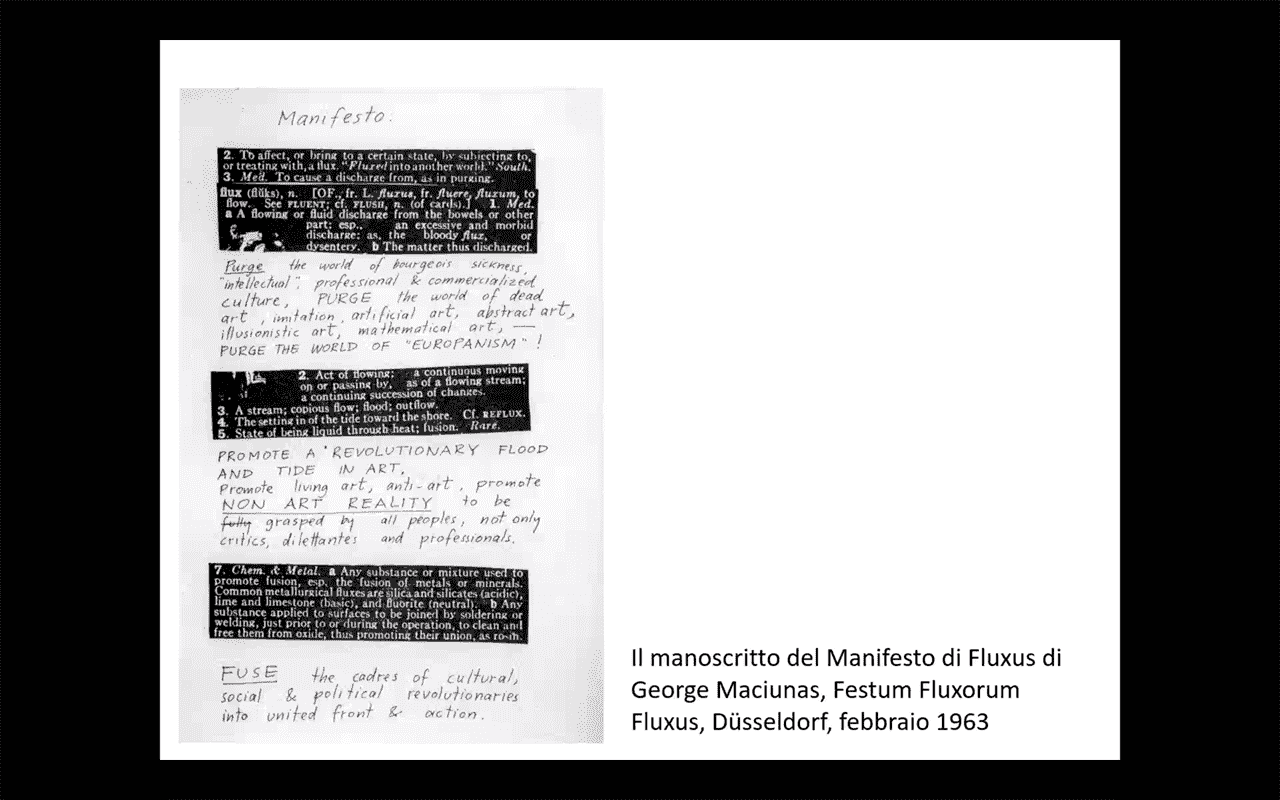 Manifesto.
2. To affect, or bring to a certain state, by subjecting to,
or treating with, a flux. "Fluxed into another world." South.
3. Med. To cause a discharge from, as in purging.
flux (flŭks), n. [OF., fr. L. fluxus, fr. fluere, fluxum, to
flow. See FLUENT; cf. FLUSH, n. (of cards).] 1. Med.
a A flowing or fluid discharge from the bowels or other
part: esp., an excessive and morbid
discharge: as, the bloody flux, or
dysentery. b The matter thus discharged.
Purge the world of bourgeois sickness,
"intellectual", professional & commercialized
culture, PURGE the world of dead
art, imitation, artificial art, abstract art,
illusionistic art, mathematical art, —
PURGE THE WORLD OF "EUROPANISM"!
2. Act of flowing: a continuous moving
on or passing by, as of a flowing stream;
a continuing succession of changes.
3. A stream; copious flow; flood; outflow.
4. The setting in of the tide toward the shore. Cf. REFLUX.
5. State of being liquid through heat; fusion. Rare.
PROMOTE A REVOLUTIONARY FLOOD
AND TIDE IN ART,
Promote living art, anti-art, promote
NON ART REALITY to be
fully grasped by all peoples, not only
critics, dilettantes and professionals.
7. Chem. & Metal. a Any substance or mixture used to
promote fusion, esp. the fusion of metals or minerals.
Common metallurgical fluxes are silica and silicates (acidic),
lime and limestone (basic), and fluorite (neutral). b Any
substance applied to surfaces to be joined by soldering or
welding, just prior to or during the operation, to clean and
free them from oxide, thus promoting their union, as rosin.
FUSE the cadres of cultural,
social & political revolutionaries
into united front & action.
Il manoscritto del Manifesto di Fluxus di
George Maciunas, Festum Fluxorum
Fluxus, Düsseldorf, febbraio 1963